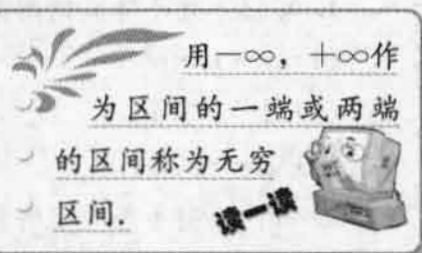 用－∞，＋∞作
为区间的一端或两端
的区间称为无穷
区间.
读一读